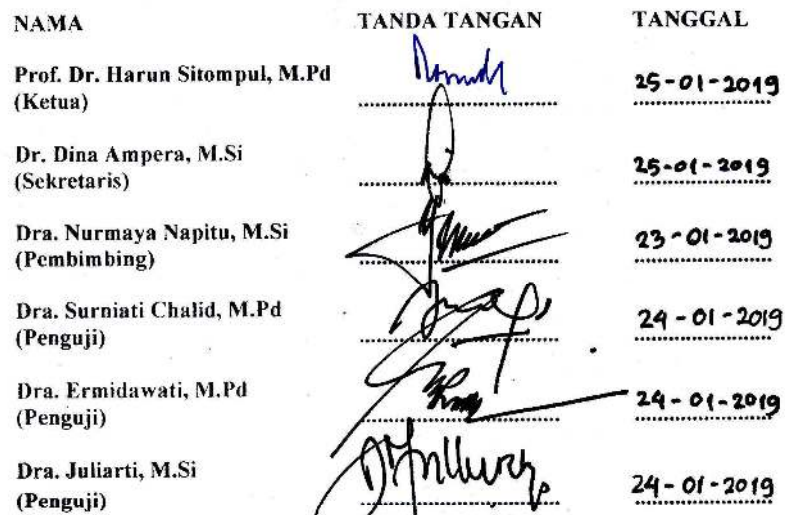 NAMA TANDA TANGAN TANGGAL
Prof. Dr. Harun Sitompul, M.Pd
(Ketua) 25-01-2019
Dr. Dina Ampera, M.Si
(Sekretaris) 25-01-2019
Dra. Nurmaya Napitu, M.Si
(Pembimbing) 23-01-2019
Dra. Surniati Chalid, M.Pd
(Penguji) 24-01-2019
Dra. Ermidawati, M.Pd
(Penguji) 24-01-2019
Dra. Juliarti, M.Si
(Penguji) 24-01-2019